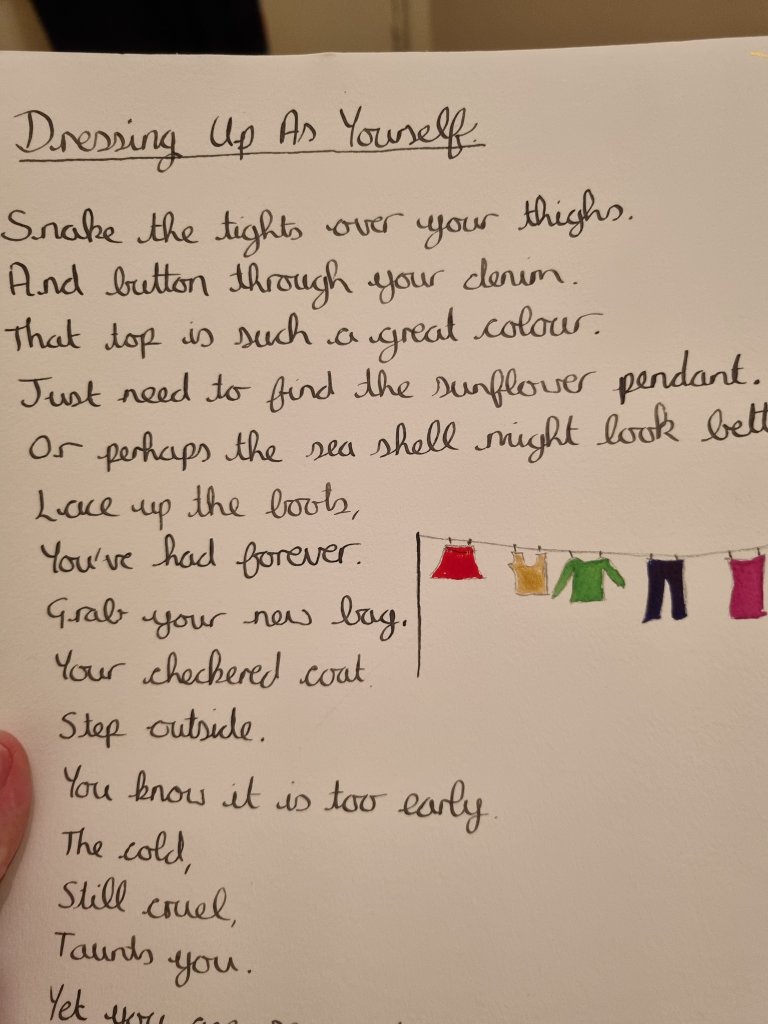 Dressing Up As Yourself.
Snake the tights over your thighs.
And button through your denim.
That top is such a great colour.
Just need to find the sunflower pendant.
Or perhaps the sea shell might look bett
Lace up the boots,
You've had forever.
Grab your new bag.
Your checkered coat
Step outside.
You know it is too early.
The cold,
Still cruel,
Taunts you.
Yet you are